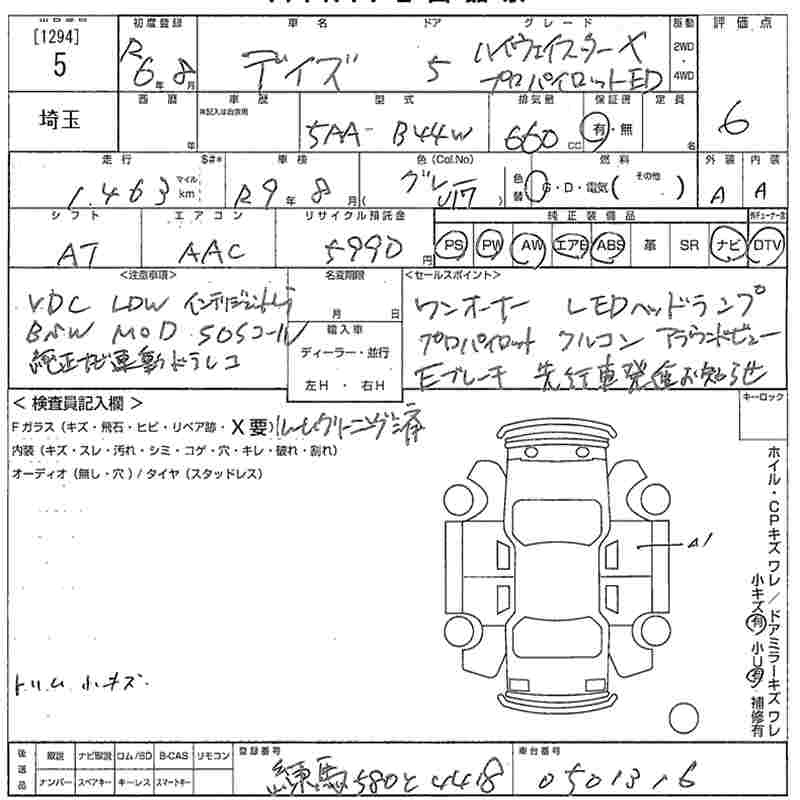 [1294]
5
初度登録
R6年8月
車名
デイズ
ドア
5
グレード
ハイウェイスターX
プロパイロットED
駆動
2WD
4WD
評価点
6
埼玉
西暦
年
車歴
型式
5AA-B44W
排気量
660 CC
保証書
有・無
定員
名
走行
1.463
マイル
km
S#*
車検
R9年8月
色 (Col.No)
グレー
U17
色替
燃料
G・D・電気(
その他
)
外装
A
内装
A
シフト
AT
エアコン
AAC
リサイクル預託金
5990円
純正装備品
PS
PW
AW
エアB
ABS
革
SR
ナビ
DTV
<注意事項>
VDC LDW
BSW MOD SOSコール
純正ナビ連動ドラレコ
名変期限
月 日
輸入車
ディーラー・並行
左H・右H
<セールスポイント>
ワンオーナー LEDヘッドランプ
プロパイロット クルコン アラウンドビュー
Eブレーキ 先行車発進お知らせ
< 検査員記入欄 >
Fガラス (キズ・飛石・ヒビ・リペア跡・X要) ルームクリーニング済
内装 (キズ・スレ・汚れ・シミ・コゲ・穴・キレ・破れ・割れ)
オーディオ (無し・穴) / タイヤ (スタッドレス)
キーロック
A1
トリム小キズ
ホイル・CPキズワレ/ドアミラーキズワレ
小キズ有 小U有 補修有
後送品
取説
ナビ取説
ロム/SD
B-CAS
リモコン
ナンバー
スペアキー
キーレス
スマートキー
登録番号
練馬580と4418
車台番号
0501316